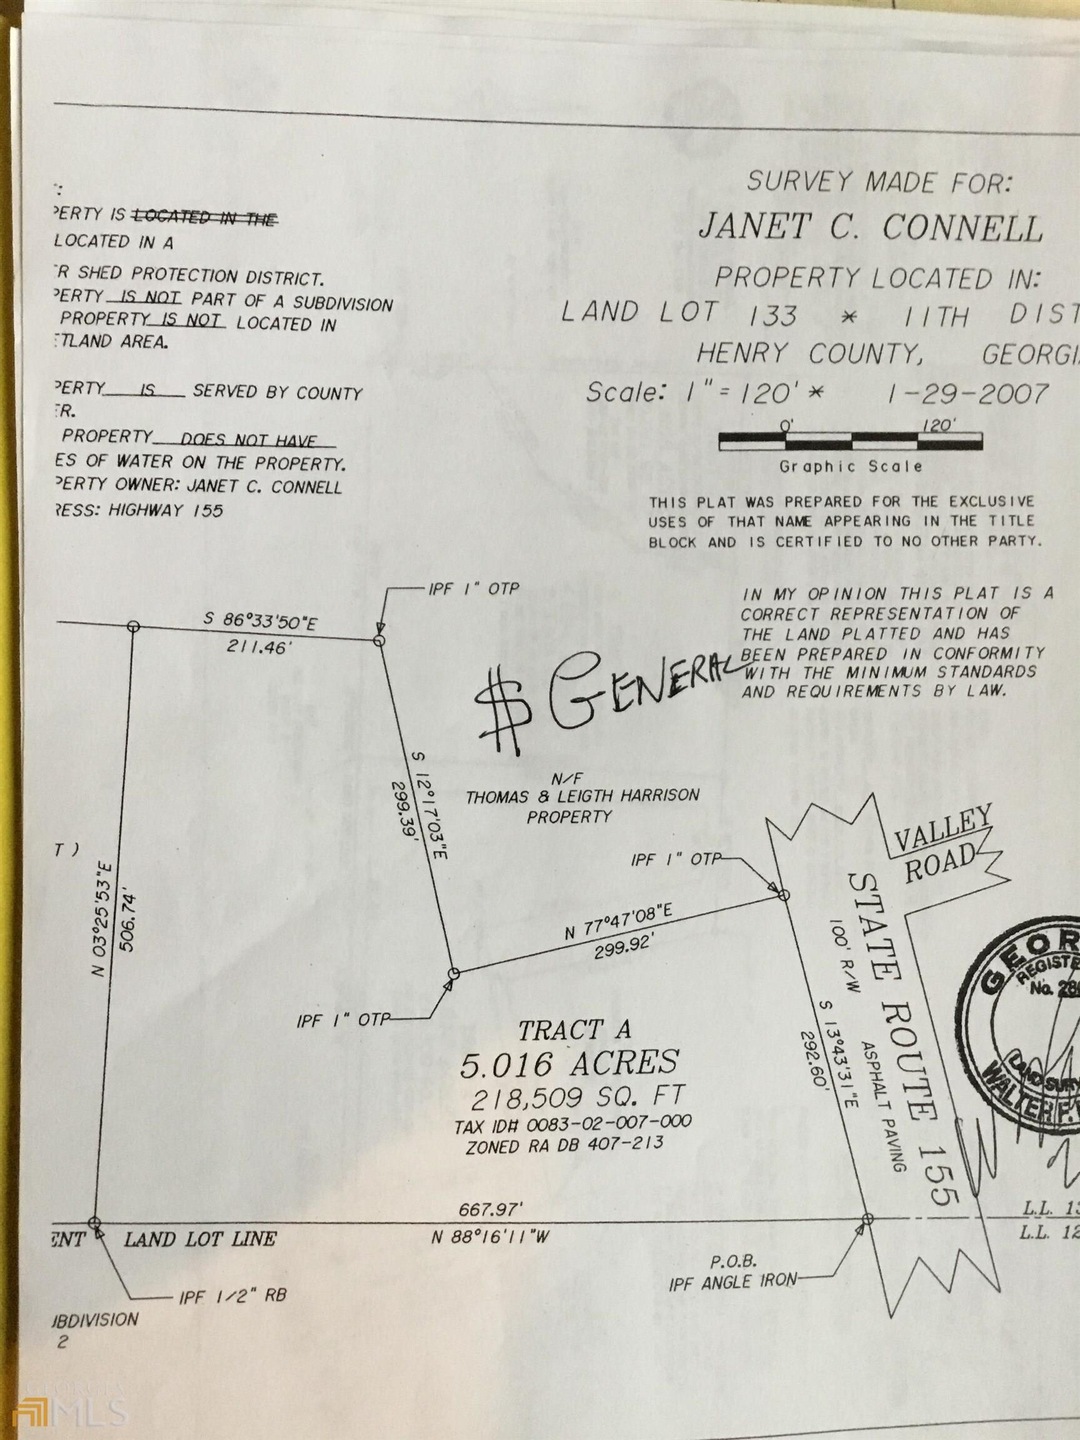 SURVEY MADE FOR:
JANET C. CONNELL
PROPERTY LOCATED IN:
LAND LOT 133 * 11TH DIST
HENRY COUNTY, GEORGI
Scale: 1"=120' * 1-29-2007
0' 120'
Graphic Scale
THIS PLAT WAS PREPARED FOR THE EXCLUSIVE
USES OF THAT NAME APPEARING IN THE TITLE
BLOCK AND IS CERTIFIED TO NO OTHER PARTY.
IN MY OPINION THIS PLAT IS A
CORRECT REPRESENTATION OF
THE LAND PLATTED AND HAS
BEEN PREPARED IN CONFORMITY
WITH THE MINIMUM STANDARDS
AND REQUIREMENTS BY LAW.
:
PERTY IS LOCATED IN THE
LOCATED IN A
R SHED PROTECTION DISTRICT.
PERTY IS NOT PART OF A SUBDIVISION
PROPERTY IS NOT LOCATED IN
ETLAND AREA.
PERTY IS SERVED BY COUNTY
ER.
PROPERTY DOES NOT HAVE
ES OF WATER ON THE PROPERTY.
PERTY OWNER: JANET C. CONNELL
RESS: HIGHWAY 155
IPF 1" OTP
S 86°33'50"E
211.46'
$ GENERAL
S 12°17'03"E
299.39'
N/F
THOMAS & LEIGTH HARRISON
PROPERTY
T )
N 03°25'53"E
506.74'
IPF 1" OTP
N 77°47'08"E
299.92'
IPF 1" OTP
VALLEY
ROAD
STATE ROUTE 155
100' R/W
ASPHALT PAVING
S 13°43'31"E
292.60'
TRACT A
5.016 ACRES
218,509 SQ. FT
TAX ID# 0083-02-007-000
ZONED RA DB 407-213
GEOR
REGISTE
No. 28
LAND SUR
WALTER F.
667.97'
N 88°16'11"W
ENT LAND LOT LINE
L.L. 13
L.L. 12
P.O.B.
IPF ANGLE IRON
IPF 1/2" RB
UBDIVISION
2
GEORGIA
MLS